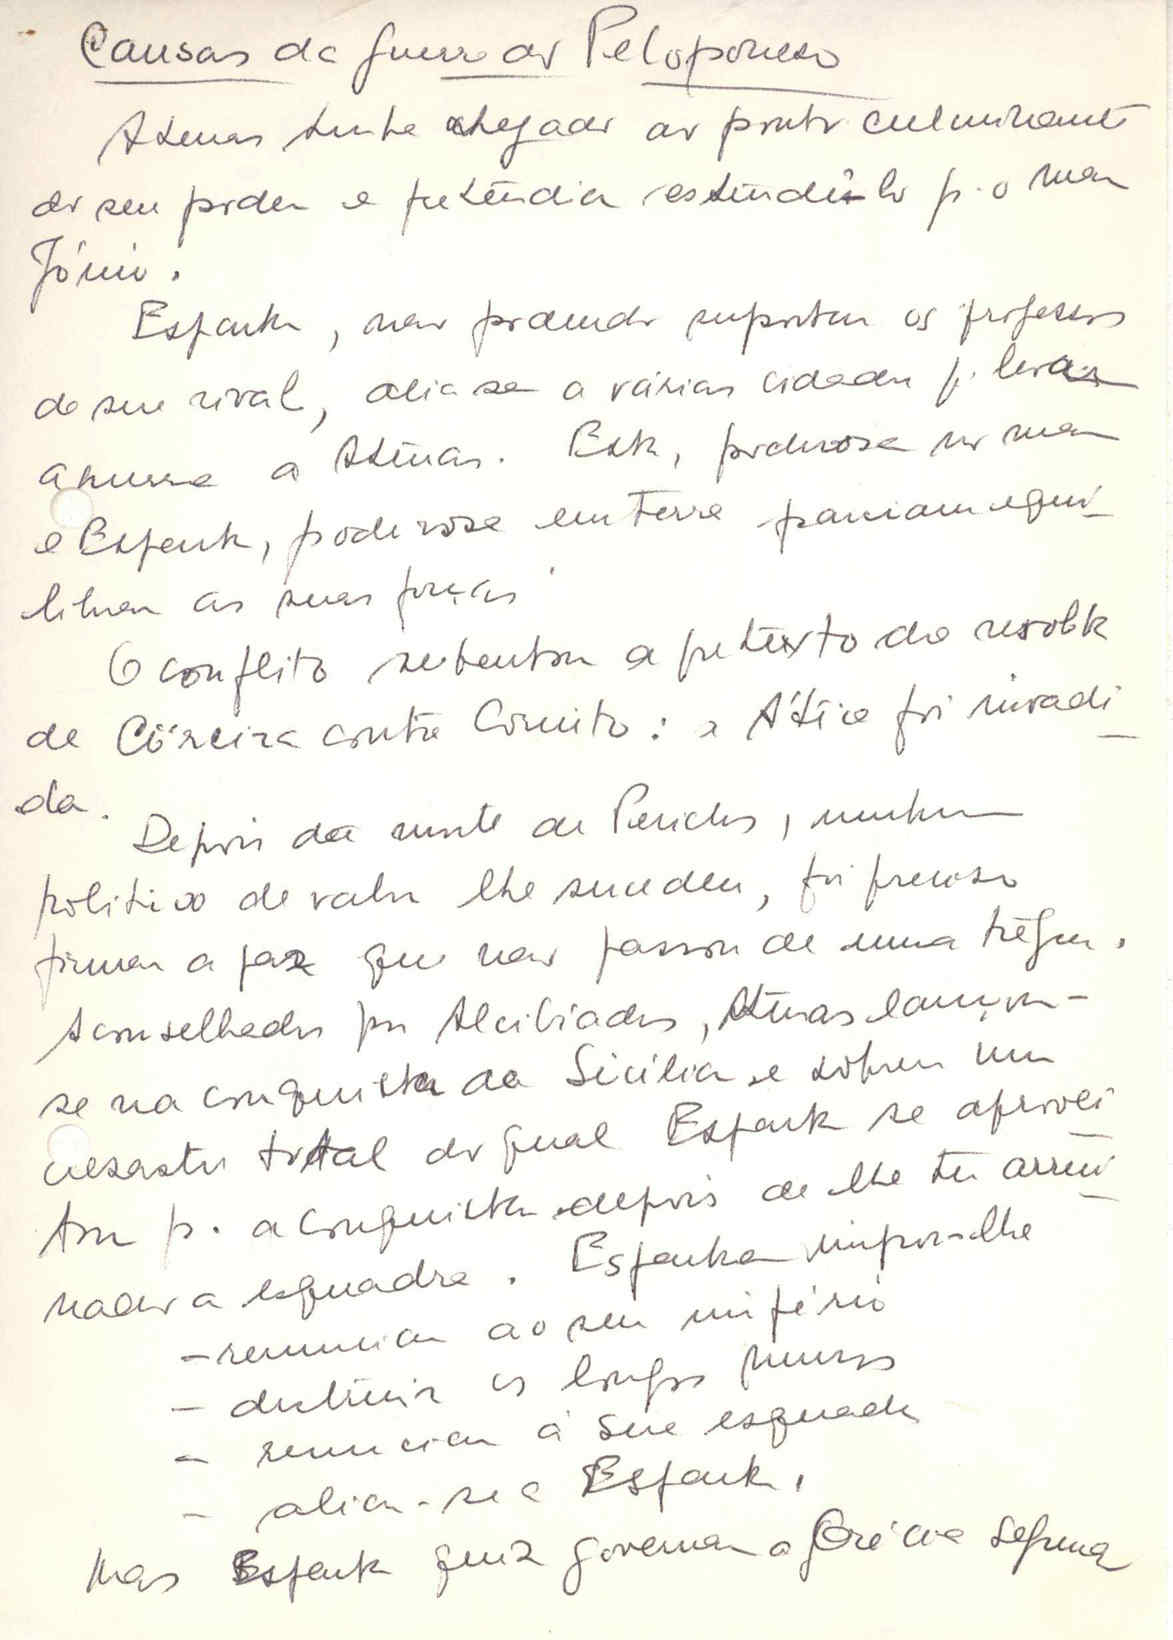 Causas da guerra do Peloponeso
Atenas tinha chegado ao ponto culminante
do seu poder e pretendia estendê-lo p. o mar
Jónio.
Esparta, não podendo suportar os progressos
da sua rival, alia-se a várias cidades p. levar
a guerra a Atenas. Esta, poderosa no mar
e Esparta, poderosa em terra pareciam equi-
librar as suas forças.
O conflito rebentou a pretexto da revolta
de Córcira contra Corinto: a Ática foi invadi-
da.
Depois da morte de Pericles, nenhum
politico de valor lhe sucedeu, foi preciso
firmar a paz que não passou de uma trégua.
Aconselhados por Alcibiades, Atenas lançou-
se na conquista da Sicilia e sofreu um
desastre total do qual Esparta se aprovei-
tou p. a conquistar depois de lhe ter arrui-
nado a esquadra. Esparta impor-lhe
- renunciar ao seu império
- destruir os longos muros
- renunciar à sua esquadra
- aliar-se a Esparta.
Mas Esparta quiz governar a Grécia segundo